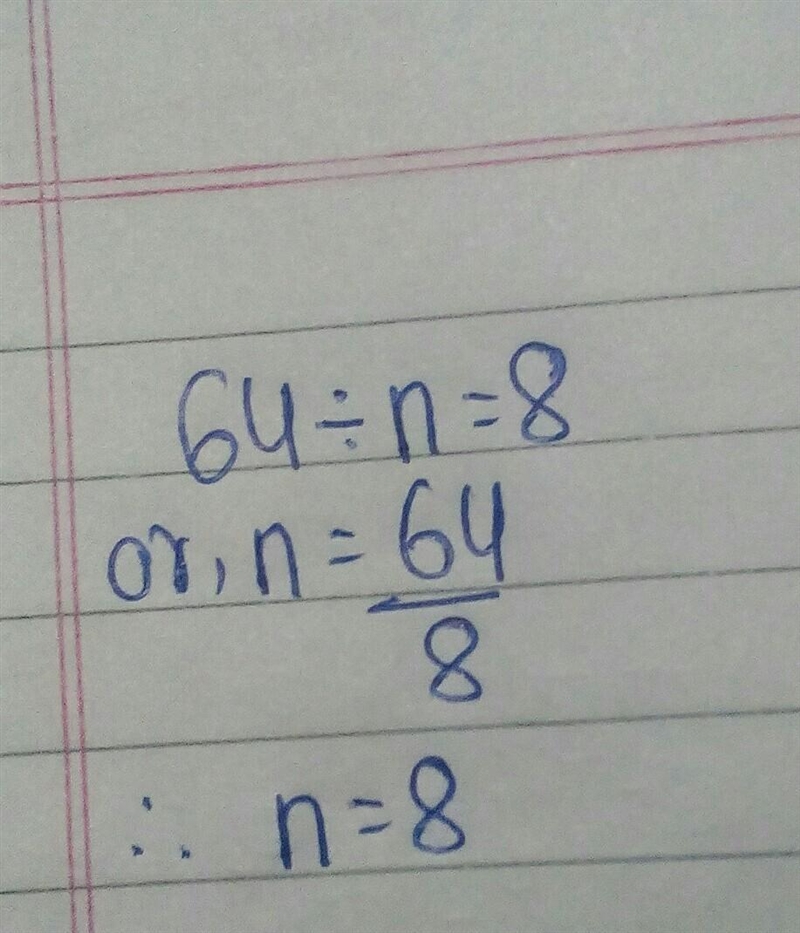 64÷n=8
or, n = 64/8
∴ n=8